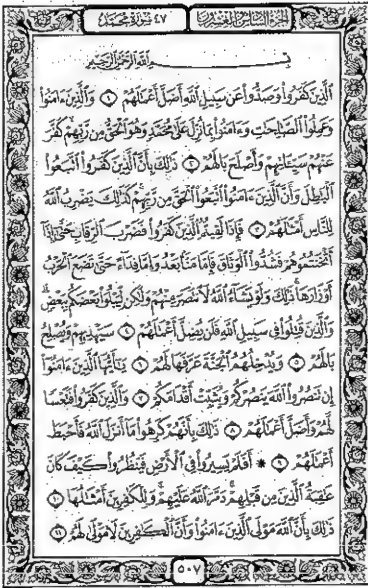 الجزء السادس والعشرون ٤٧ سورة محمد
بِسْمِ اللَّهِ الرَّحْمَٰنِ الرَّحِيمِ
الَّذِينَ كَفَرُوا وَصَدُّوا عَن سَبِيلِ اللَّهِ أَضَلَّ أَعْمَالَهُمْ ١ وَالَّذِينَ ءَامَنُوا
وَعَمِلُوا الصَّالِحَاتِ وَءَامَنُوا بِمَا نُزِّلَ عَلَىٰ مُحَمَّدٍ وَهُوَ الْحَقُّ مِن رَّبِّهِمْ كَفَّرَ
عَنْهُمْ سَيِّئَاتِهِمْ وَأَصْلَحَ بَالَهُمْ ٢ ذَٰلِكَ بِأَنَّ الَّذِينَ كَفَرُوا اتَّبَعُوا
الْبَاطِلَ وَأَنَّ الَّذِينَ ءَامَنُوا اتَّبَعُوا الْحَقَّ مِن رَّبِّهِمْ كَذَٰلِكَ يَضْرِبُ اللَّهُ
لِلنَّاسِ أَمْثَالَهُمْ ٣ فَإِذَا لَقِيتُمُ الَّذِينَ كَفَرُوا فَضَرْبَ الرِّقَابِ حَتَّىٰ إِذَا
أَثْخَنتُمُوهُمْ فَشُدُّوا الْوَثَاقَ فَإِمَّا مَنًّا بَعْدُ وَإِمَّا فِدَاءً حَتَّىٰ تَضَعَ الْحَرْبُ
أَوْزَارَهَا ذَٰلِكَ وَلَوْ يَشَاءُ اللَّهُ لَانتَصَرَ مِنْهُمْ وَلَٰكِن لِّيَبْلُوَا بَعْضَكُم بِبَعْضٍ
وَالَّذِينَ قُتِلُوا فِي سَبِيلِ اللَّهِ فَلَن يُضِلَّ أَعْمَالَهُمْ ٤ سَيَهْدِيهِمْ وَيُصْلِحُ
بَالَهُمْ ٥ وَيُدْخِلُهُمُ الْجَنَّةَ عَرَّفَهَا لَهُمْ ٦ يَا أَيُّهَا الَّذِينَ ءَامَنُوا
إِن تَنصُرُوا اللَّهَ يَنصُرْكُمْ وَيُثَبِّتْ أَقْدَامَكُمْ ٧ وَالَّذِينَ كَفَرُوا فَتَعْسًا
لَّهُمْ وَأَضَلَّ أَعْمَالَهُمْ ٨ ذَٰلِكَ بِأَنَّهُمْ كَرِهُوا مَا أَنزَلَ اللَّهُ فَأَحْبَطَ
أَعْمَالَهُمْ ٩ ۞ أَفَلَمْ يَسِيرُوا فِي الْأَرْضِ فَيَنظُرُوا كَيْفَ كَانَ
عَاقِبَةُ الَّذِينَ مِن قَبْلِهِمْ دَمَّرَ اللَّهُ عَلَيْهِمْ وَلِلْكَافِرِينَ أَمْثَالُهَا ١٠
ذَٰلِكَ بِأَنَّ اللَّهَ مَوْلَى الَّذِينَ ءَامَنُوا وَأَنَّ الْكَافِرِينَ لَا مَوْلَىٰ لَهُمْ ١١
٥٠٧